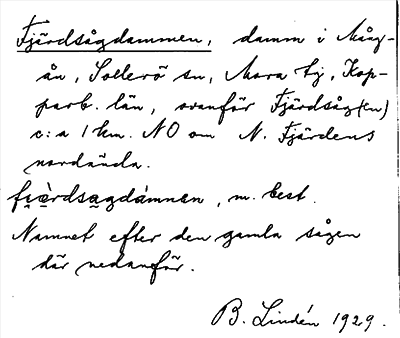 Fjärdsågdammen, damm i Mång-
ån, Sollerö sn, Mora tg, Kop-
parb. län, ovanför Fjärdsåg(en)
c:a 1 km. NO om N. Fjärdens
nordända.
fjärdsagdámnan, m. best.
Namnet efter den gamla sågen
där nedanför.
B. Lindén 1929.